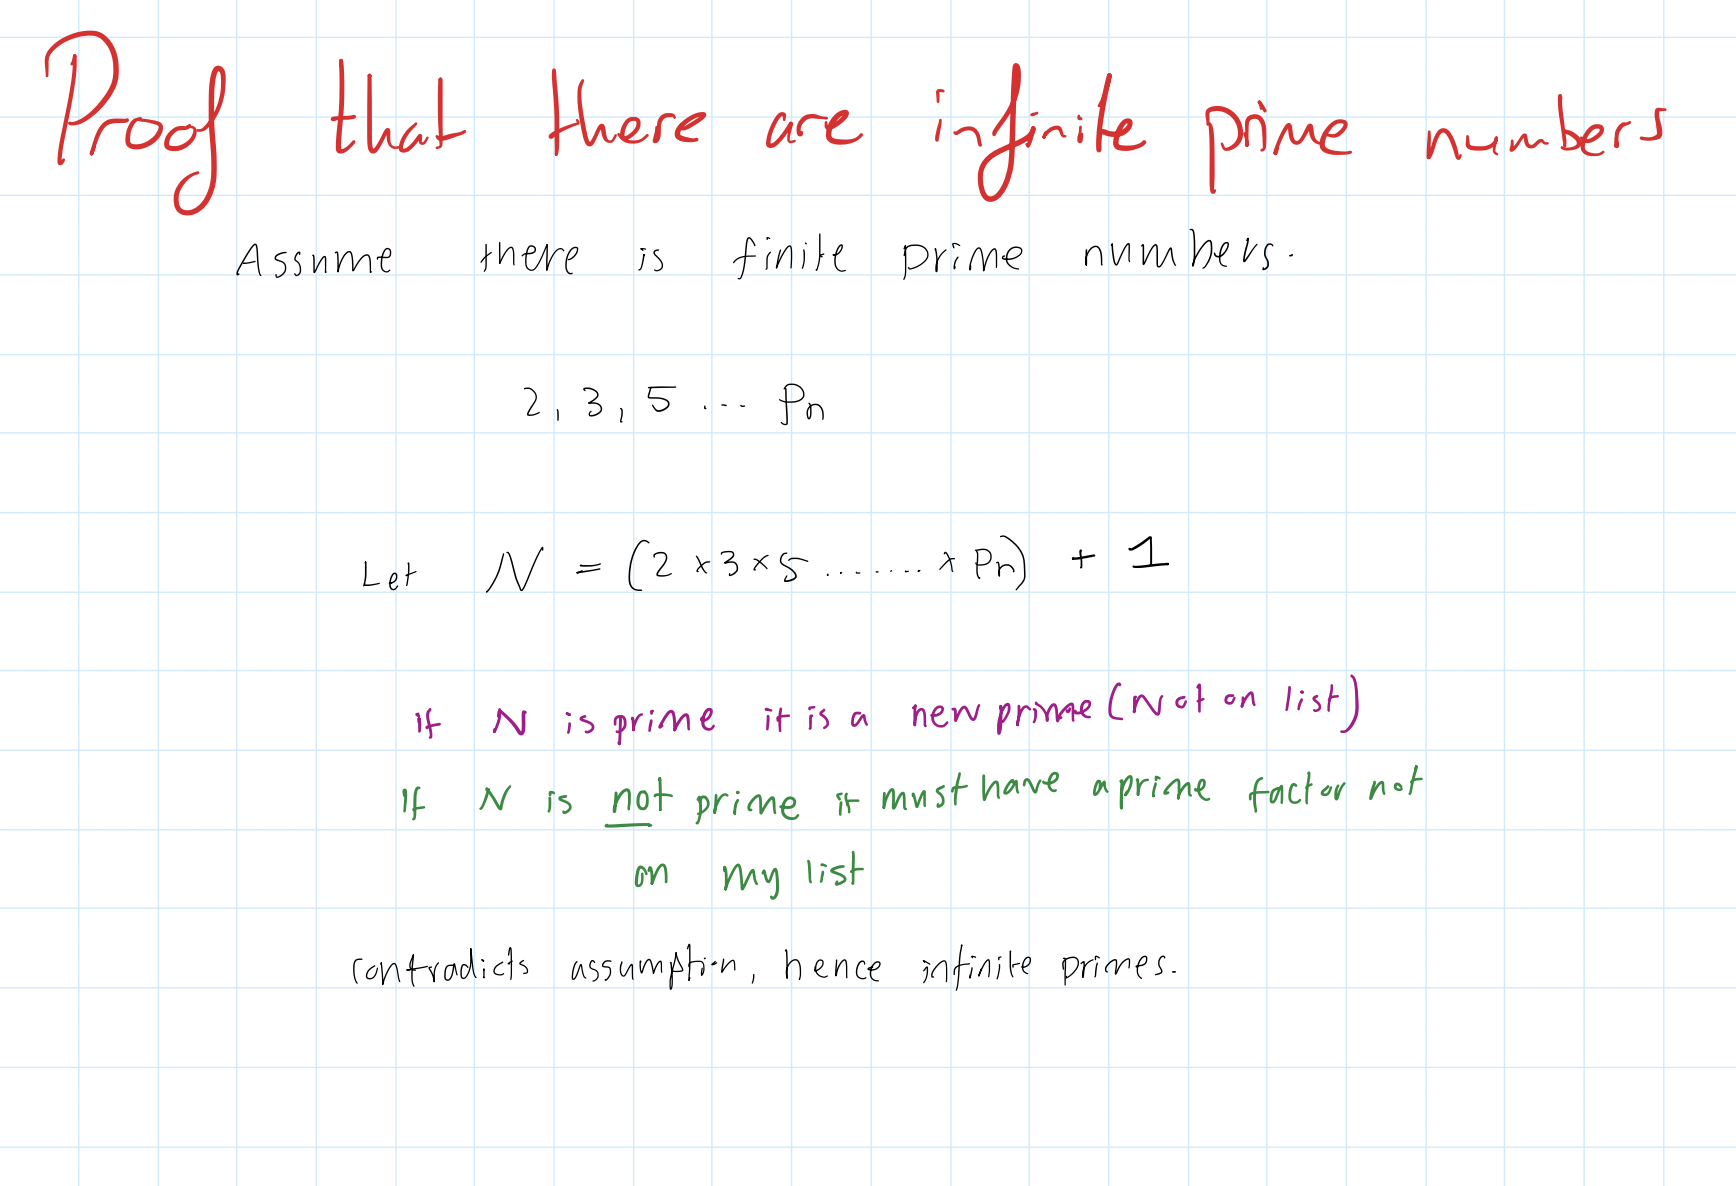 Proof that there are infinite prime numbers
Assume there is finite prime numbers.
2, 3, 5 ... Pn
Let N = (2 × 3 × 5 ........ × Pn) + 1
If N is prime it is a new prime (Not on list)
If N is not prime it must have a prime factor not
on my list
contradicts assumption, hence infinite primes.